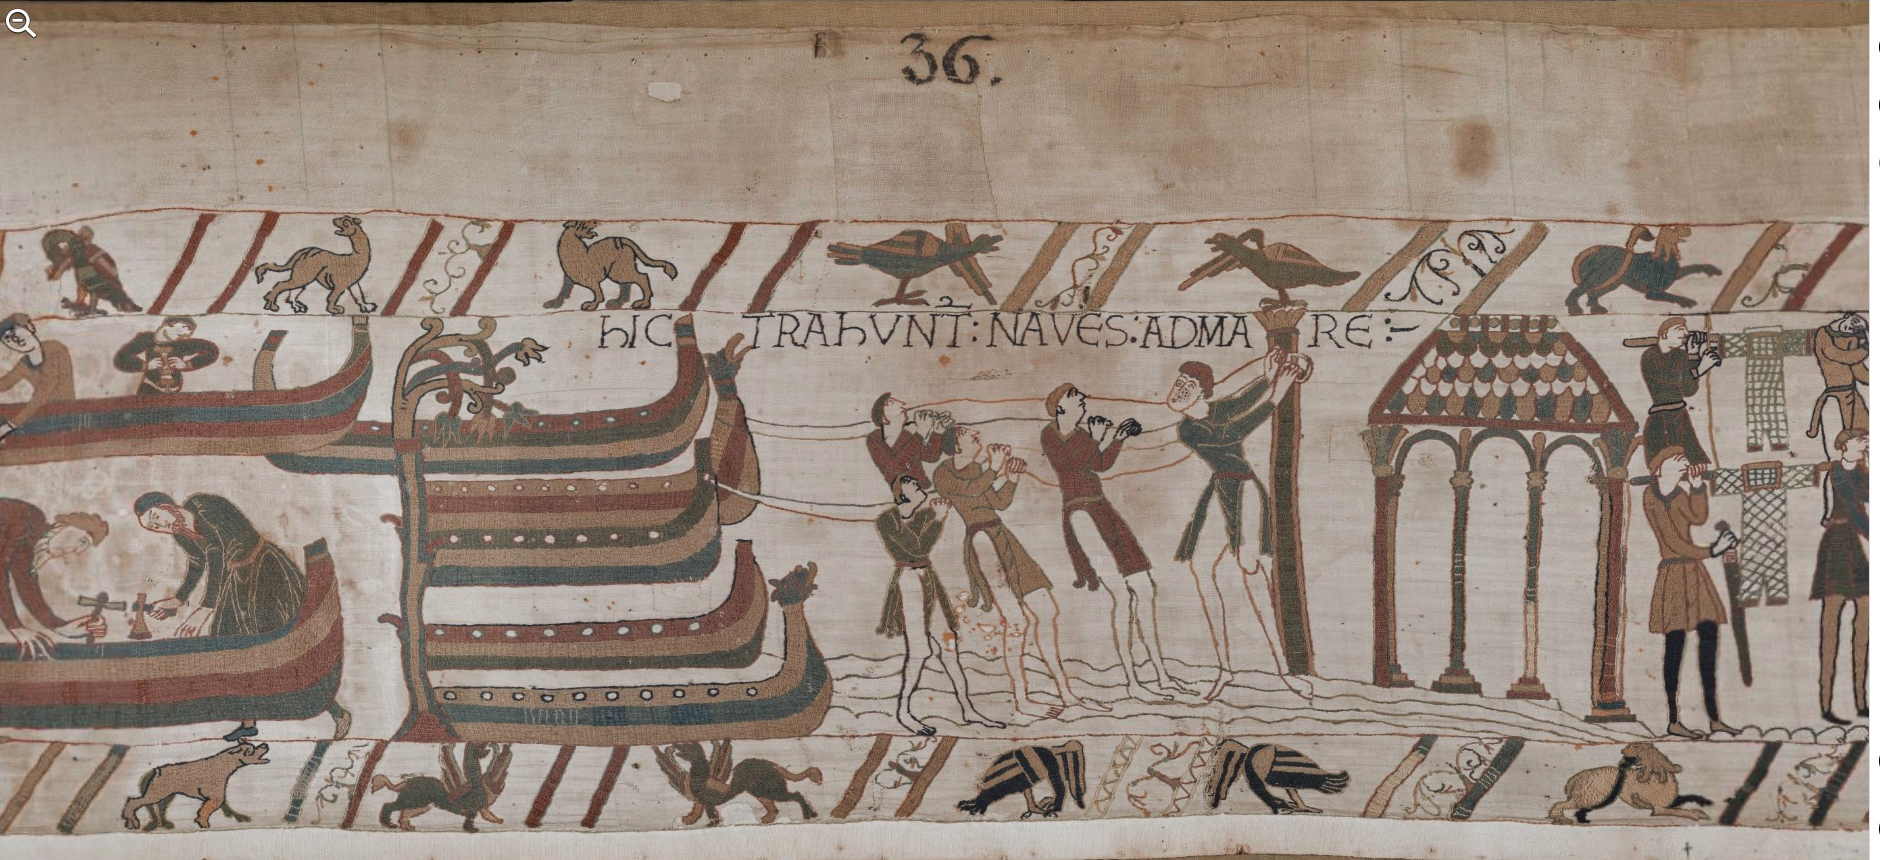 36.
hIC TRAhVNT̄: NAVES: ADMARE:-